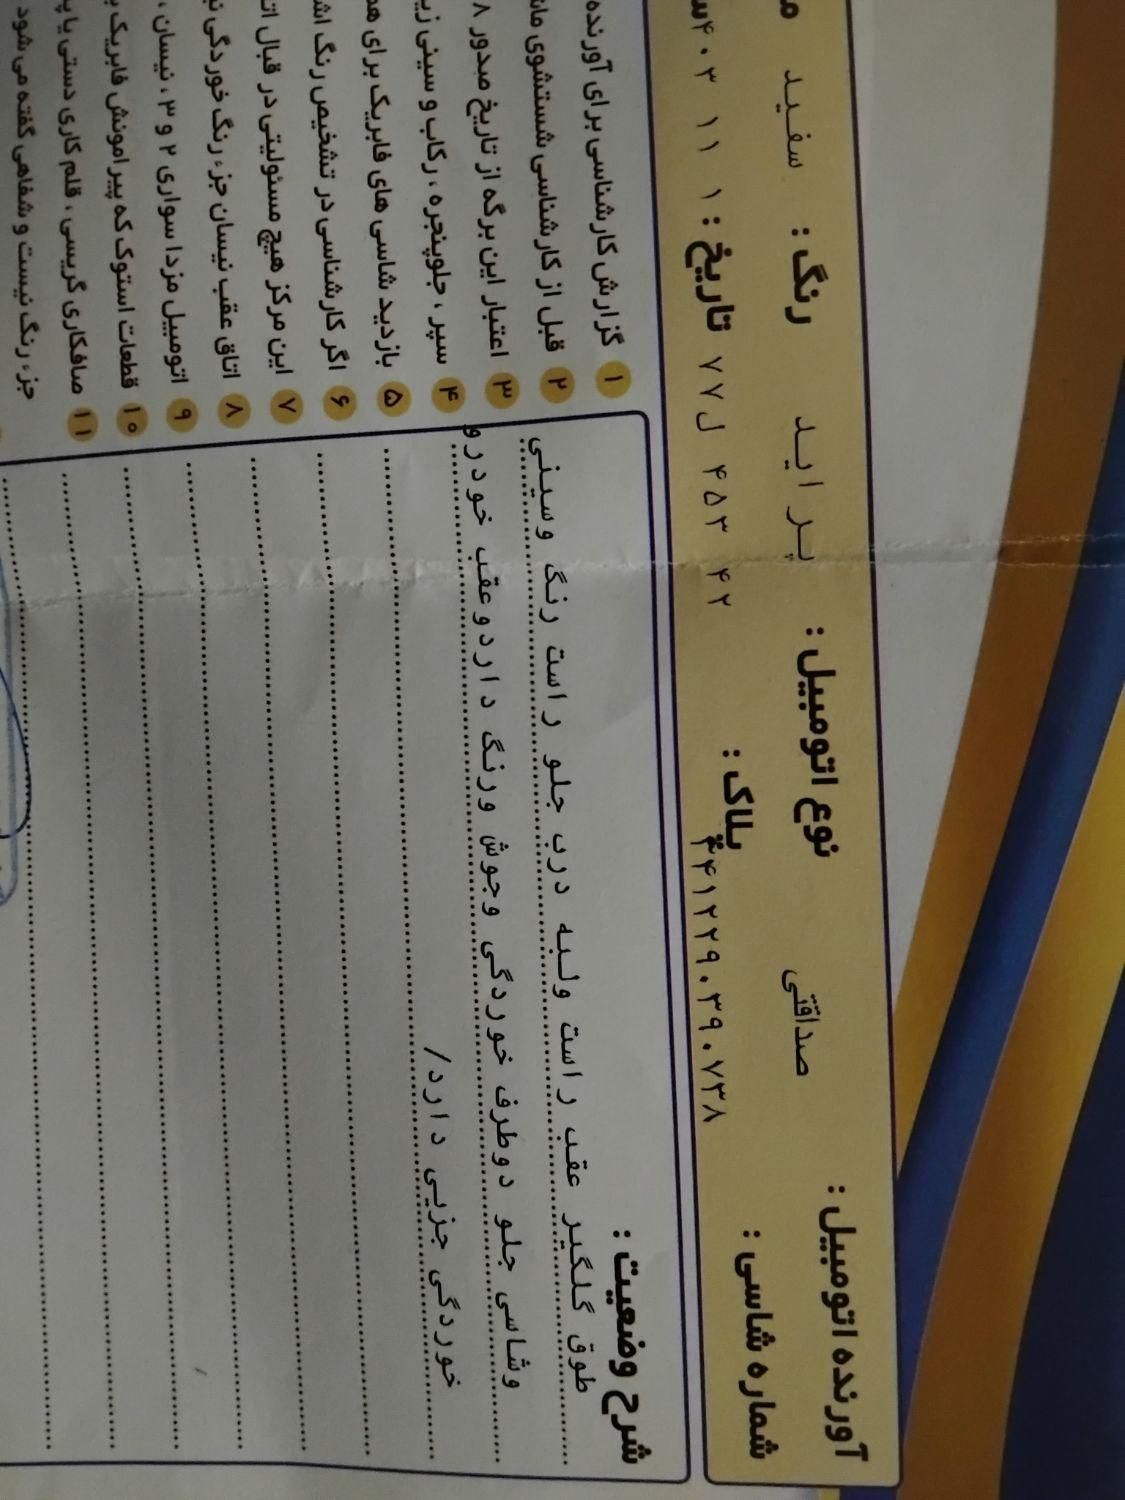 آورنده اتومبیل : صداقتی نوع اتومبیل : پراید رنگ : سفید
شماره شاسی : ۳۴۱۲۲۹۰۳۹۰۷۳۸ پلاک : ۴۲ ۴۵۳ ل ۷۷ تاریخ : ۱ ۱۱ ۴۰۳
شرح وضعیت :
طوق گلگیر عقب راست ولبه درب جلو راست رنگ وسینی
وشاسی جلو دوطرف خوردگی وجوش ورنگ داردوعقب خودرو
خوردگی جزیی دارد/
۱ گزارش کارشناسی برای آورنده
۲ قبل از کارشناسی شستشوی
۳ اعتبار این برگه از تاریخ صدور ۸
۴ سپر ، جلوپنجره ، رکاب و سینی
۵ بازدید شاسی های فابریک برای
۶ اگر کارشناسی در تشخیص رنگ
۷ این مرکز هیچ مسئولیتی در قبال
۸ اتاق عقب نیسان جزء رنگ خوردگی
۹ اتومبیل مزدا سواری ۲ و ۳ ، نیسان ،
۱۰ قطعات استوک که پیرامونش فابریک
۱۱ صافکاری گریسی ، قلم کاری دستی یا
جزء رنگ نیست و شفاهی گفته می‌شود